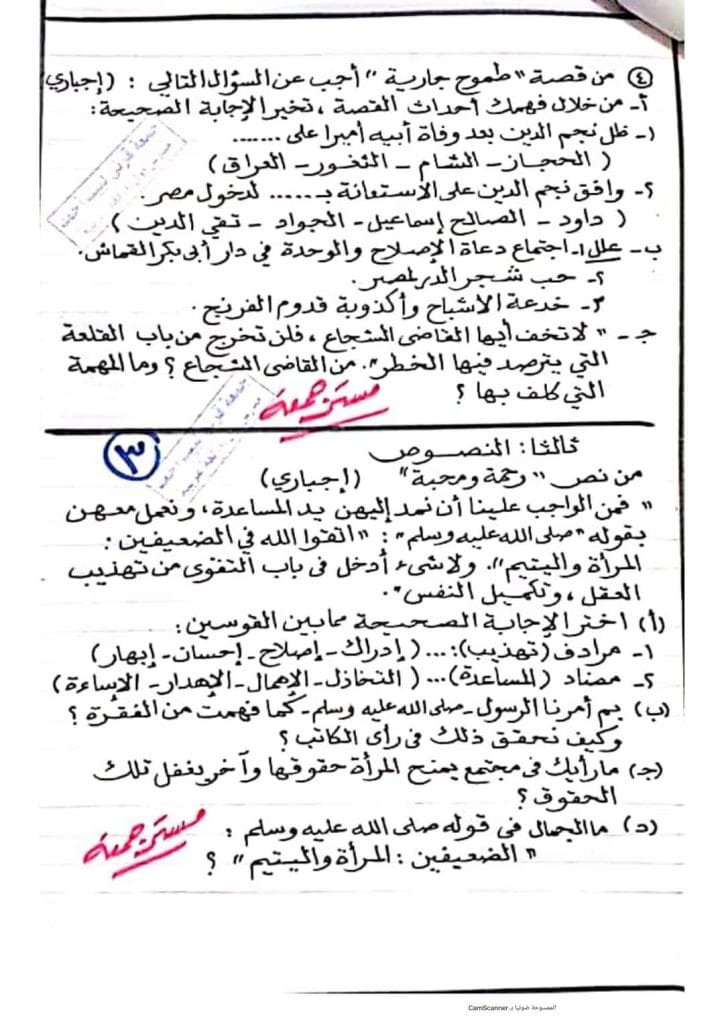 ④ من قصة "طموح جارية" أجب عن السؤال التالي : (إجباري)
أ- من خلال فهمك أحداث القصة ، تخير الإجابة الصحيحة:
١- ظل نجم الدين بعد وفاة أبيه أميرا على .......
( الحجاز - الشام - الثغور - العراق )
٢- وافق نجم الدين على الاستعانة بـ...... لدخول مصر.
( داود - الصالح إسماعيل - الجواد - تقي الدين )
ب- علل ١- اجتماع دعاة الإصلاح والوحدة في دار أبى بكر القماش.
٢- حب شجر الدر لمصر.
٣- خدعة الأشباح وأكذوبة قدوم الفرنج.
جـ- "لا تخف أيها القاضى الشجاع ، فلن تخرج من باب القلعة
التي يترصد فيها الخطر". من القاضى الشجاع ؟ وما المهمة
التي كلف بها ؟
مستر جمعة
٣
ثالثا : النصوص
من نص "رحمة ومحبة" (إجباري)
"فمن الواجب علينا أن نمد إليهن يد المساعدة، ونعمل معهن
بقوله "صلى الله عليه وسلم" : "اتقوا الله في الضعيفين :
المرأة واليتيم". ولا شىء أدخل فى باب التقوى من تهذيب
العقل ، وتكميل النفس".
(أ) اختر الإجابة الصحيحة مما بين القوسين :
١- مرادف (تهذيب):... ( إدراك - إصلاح - إحسان - إبهار)
٢- مضاد (المساعدة)... ( التخاذل - الإهمال - الإهدار - الإساءة)
(ب) بم أمرنا الرسول - صلى الله عليه وسلم - كما فهمت من الفقرة ؟
وكيف نحقق ذلك فى رأى الكاتب ؟
(جـ) ما رأيك فى مجتمع يمنح المرأة حقوقها وآخر يغفل تلك
الحقوق ؟
(د) ما الجمال فى قوله صلى الله عليه وسلم :
"الضعيفين : المرأة واليتيم" ؟
مستر جمعة
الممسوحة ضوئيا بـ CamScanner